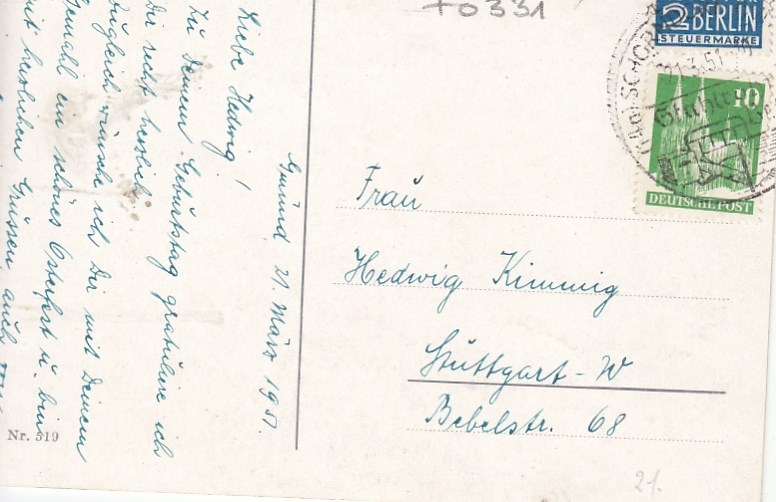 70331
BERLIN
2
STEUERMARKE
10
DEUTSCHE POST
Gmünd, 21. März 1951.
Liebe Hedwig!
Zu Deinem Geburtstag gratuliere ich
Dir recht herzlich.
Zugleich wünsche ich Dir mit Deinem
Gemahl ein schönes Osterfest u. bin
mit herzlichen Grüssen auch
Frau
Hedwig Kimmig
Stuttgart-W
Bebelstr. 68
Nr. 519
21.